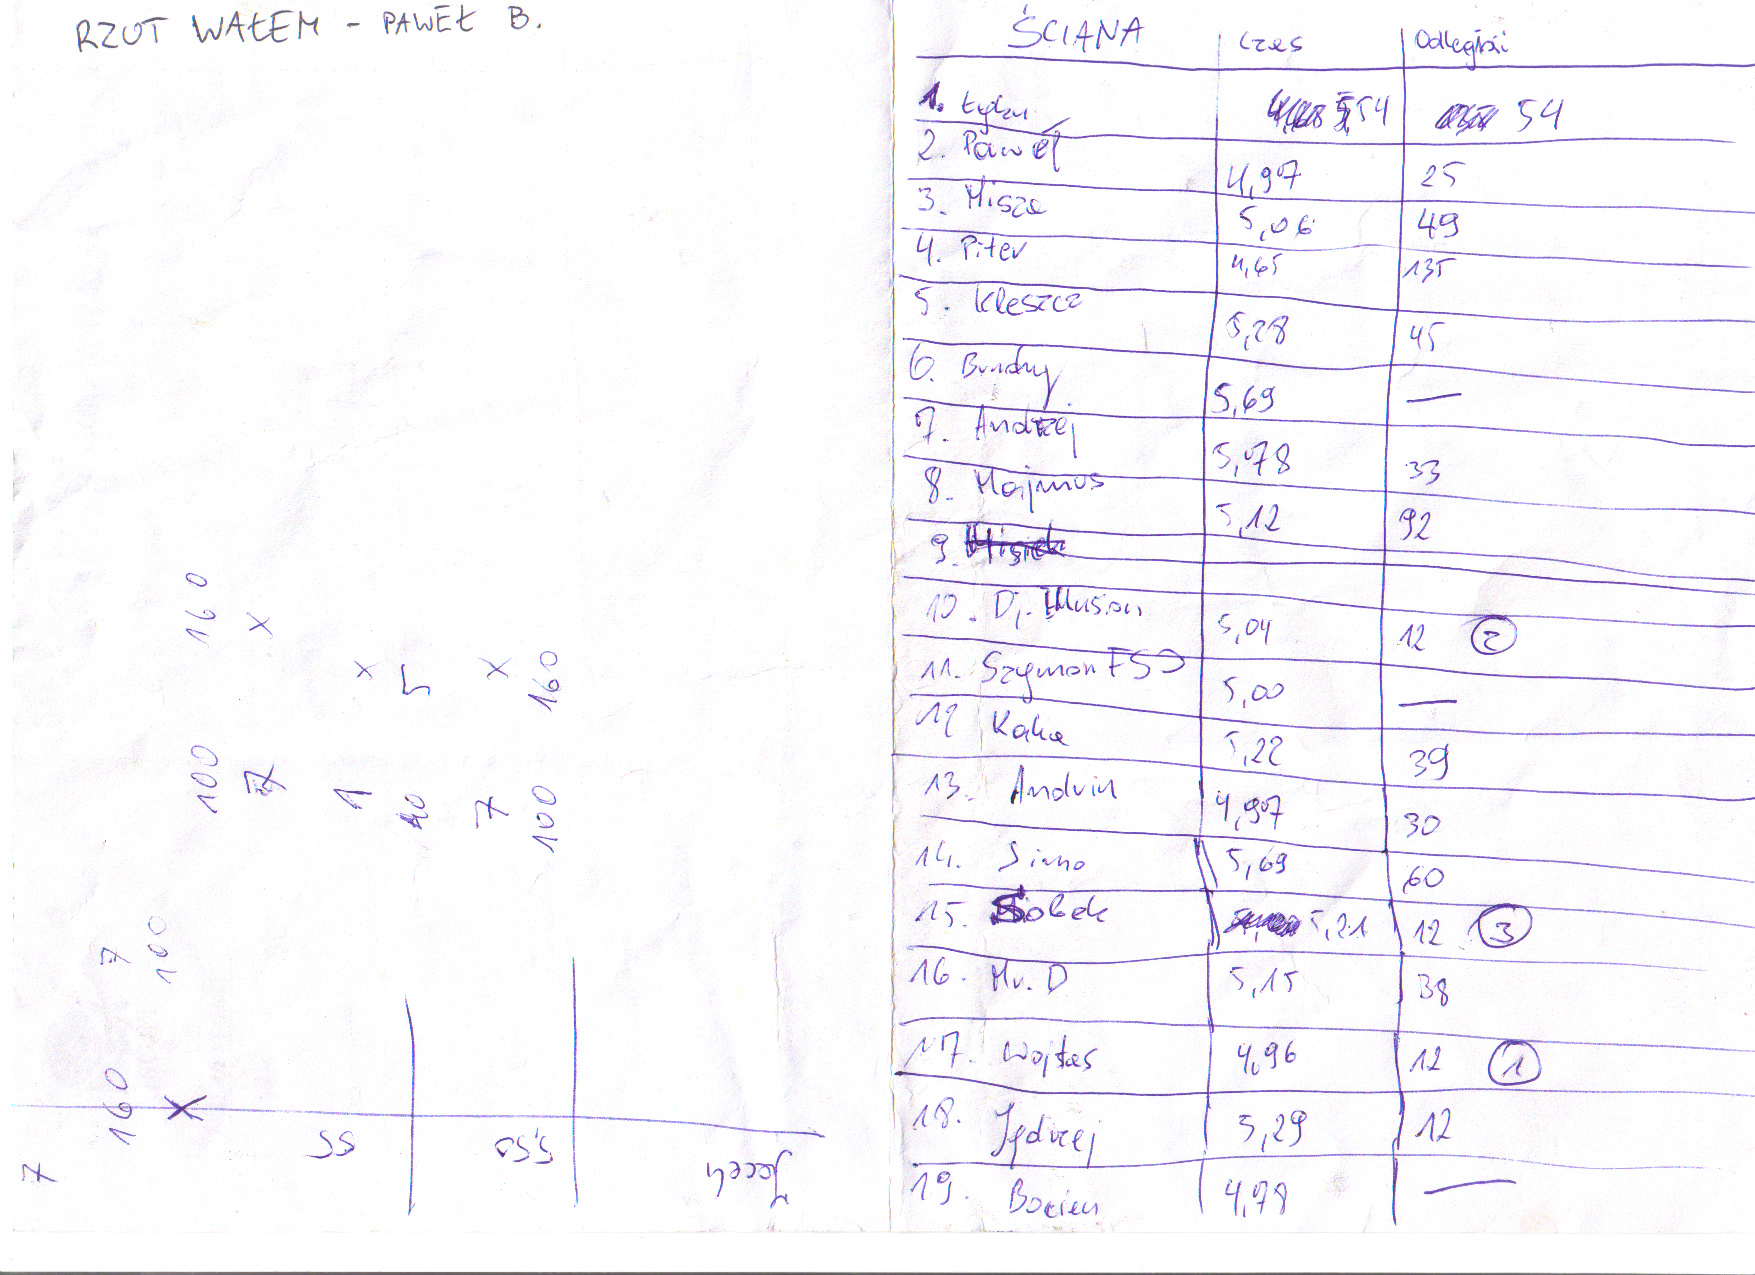 RZUT WAŁEM - PAWEŁ B.
160
x
100
7
x
5
x
160
1
40
7
100
7
100
160
x
7
SS
5,50
Jacek
ŚCIANA Czas Odległość
1. Łyku 5,54 54
2. Paweł 4,97 25
3. Misza 5,06 49
4. Piter 4,65 135
5. Kleszcz 5,28 45
6. Brudny 5,69 —
7. Andrzej 5,78 33
8. Majmus 5,12 92
9. Misiek
10. Dj. Illusion 5,04 12 2
11. Szymon FSO 5,00 —
12 Kaka 5,22 39
13. Andrin 4,97 30
14. Simo 5,69 60
15. Sobek 5,21 12 3
16. Mr. D 5,15 38
17. Wojtas 4,96 12 1
18. Jędrzej 5,29 12
19. Bocian 4,78 —